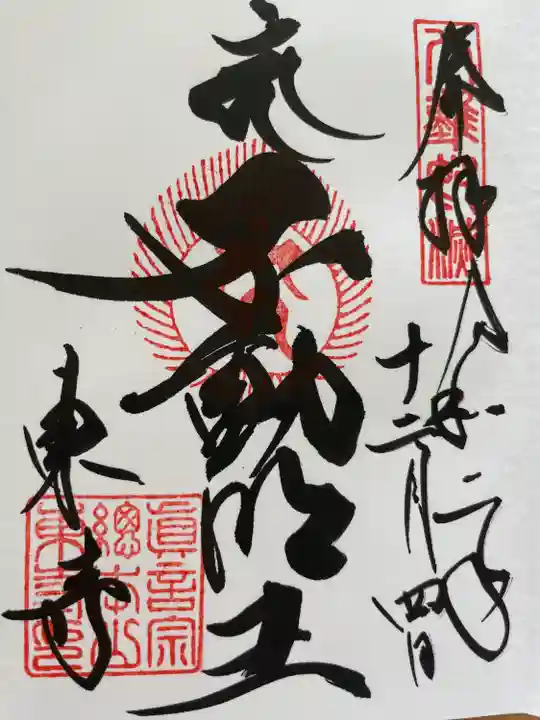 奉拝 令和二年
十二月四日
不動明王
東寺
眞言宗
總本山
東寺印